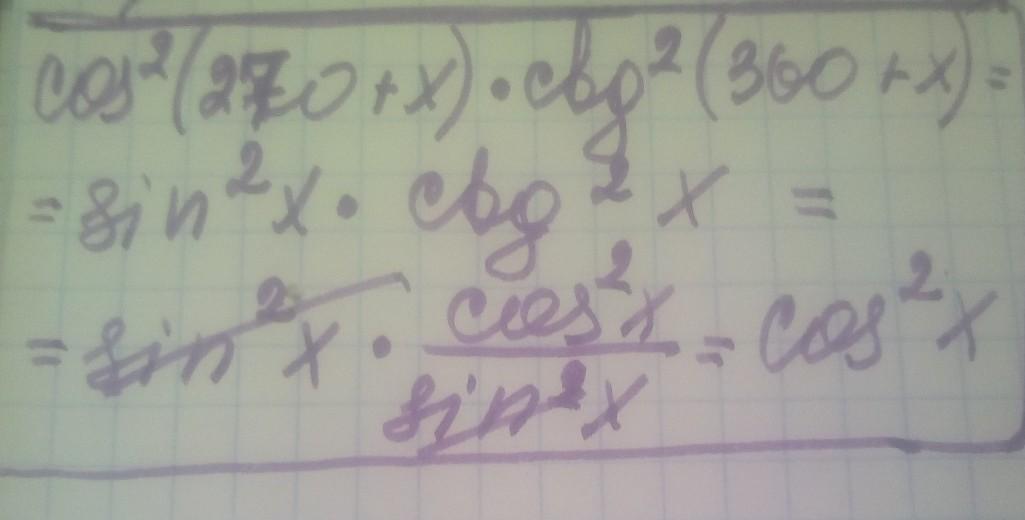 cos²(270+x)·ctg²(360+x)=
=sin²x·ctg²x=
=sin²x·cos²x/sin²x=cos²x